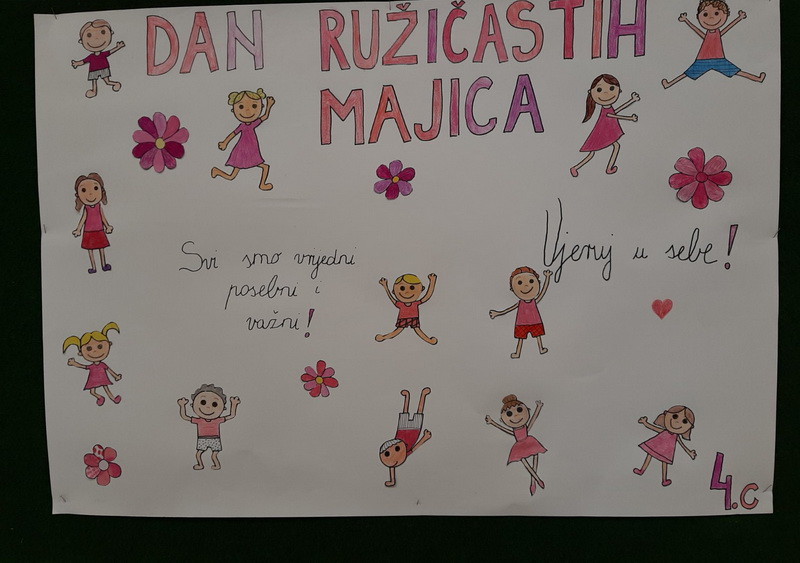 DAN RUŽIČASTIH
MAJICA
Svi smo vrijedni
posebni i
važni!
Vjeruj u sebe!
4.c